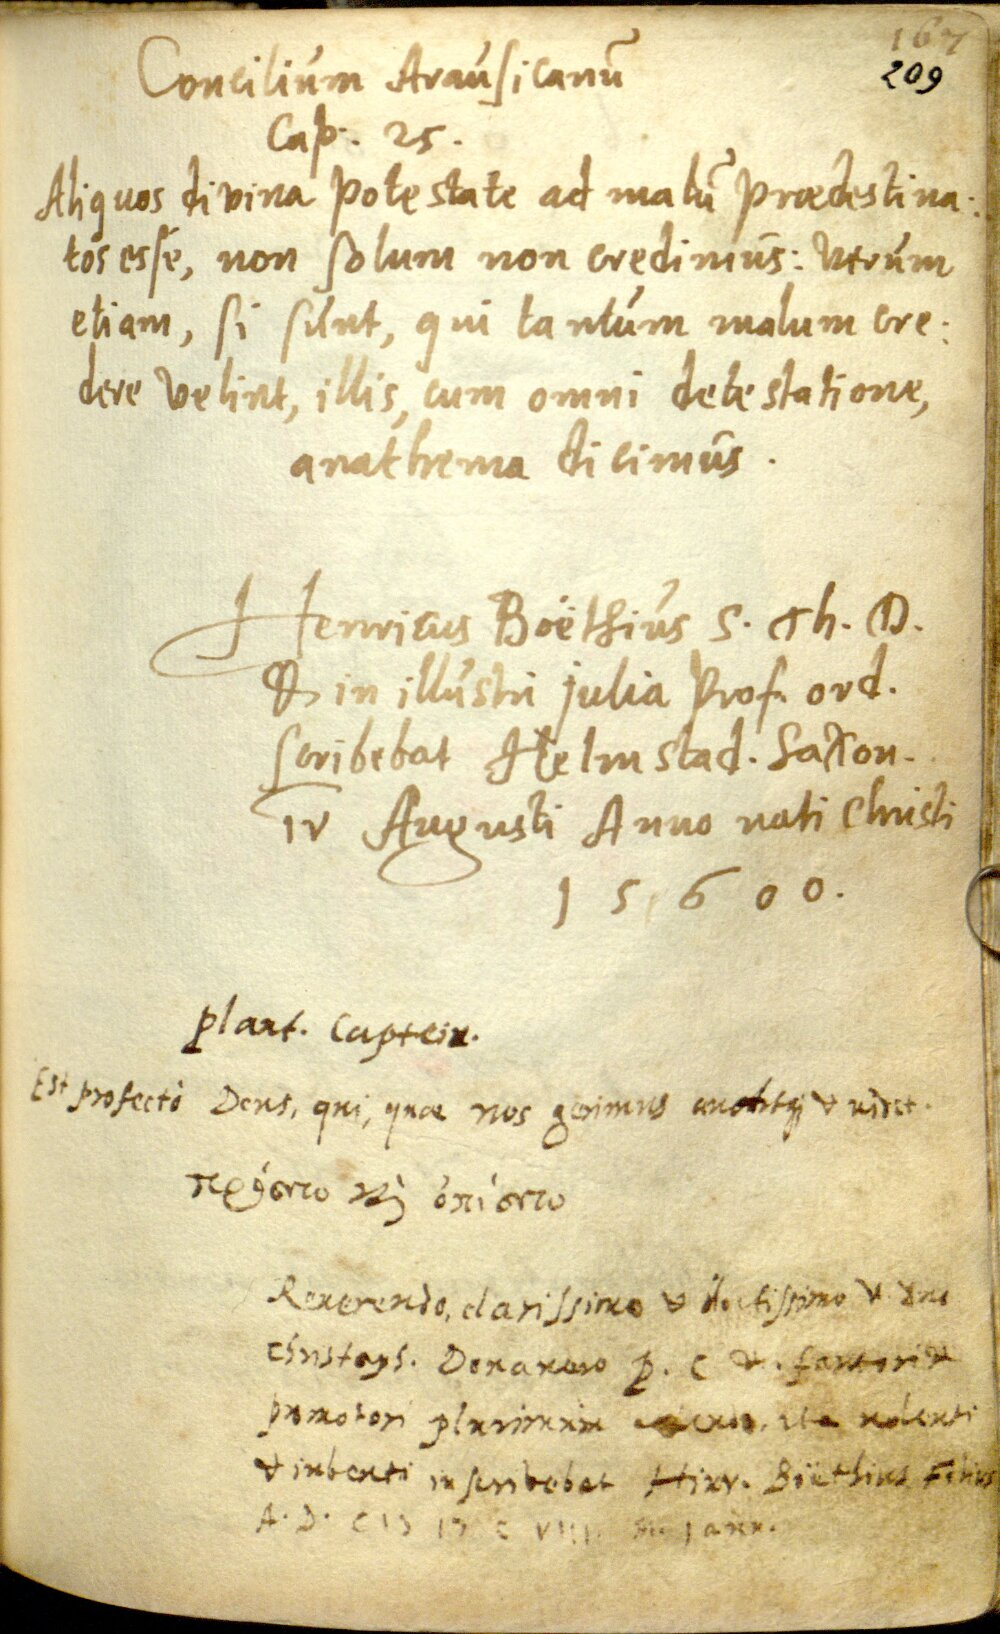 167
209
Concilium Arausicanū
Cap. 25.
Aliquos divina potestate ad malū prædestina:
tos esse, non solum non credimus: Verum
etiam, si sunt, qui tantum malum cre:
dere velint, illis, cum omni detestatione,
anathema dicimus.
Henricus Boëthius S. Th. D.
& in illustri Julia Prof. ord.
scribebat Helmstad. Saxon.
IV Augusti Anno nati Christi
15600.
Plaut. Capteiv.
Est profectò Deus, qui, quæ nos gerimus & videt.
πρόσσω καὶ ὀπίσσω
Reverendo, clarissimo & doctissimo & dno
Christoph. Donavero P. C &. fautori &
promotori plurimum ita volenti
& iubenti inscribebat Hinr. Boëthius Filius
A. D. CIƆ IƆ C VIII. Janu.